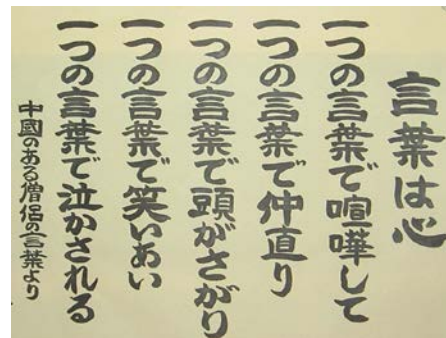 言葉は心
一つの言葉で喧嘩して
一つの言葉で仲直り
一つの言葉で頭がさがり
一つの言葉で笑いあい
一つの言葉で泣かされる
中國のある僧侶の言葉より